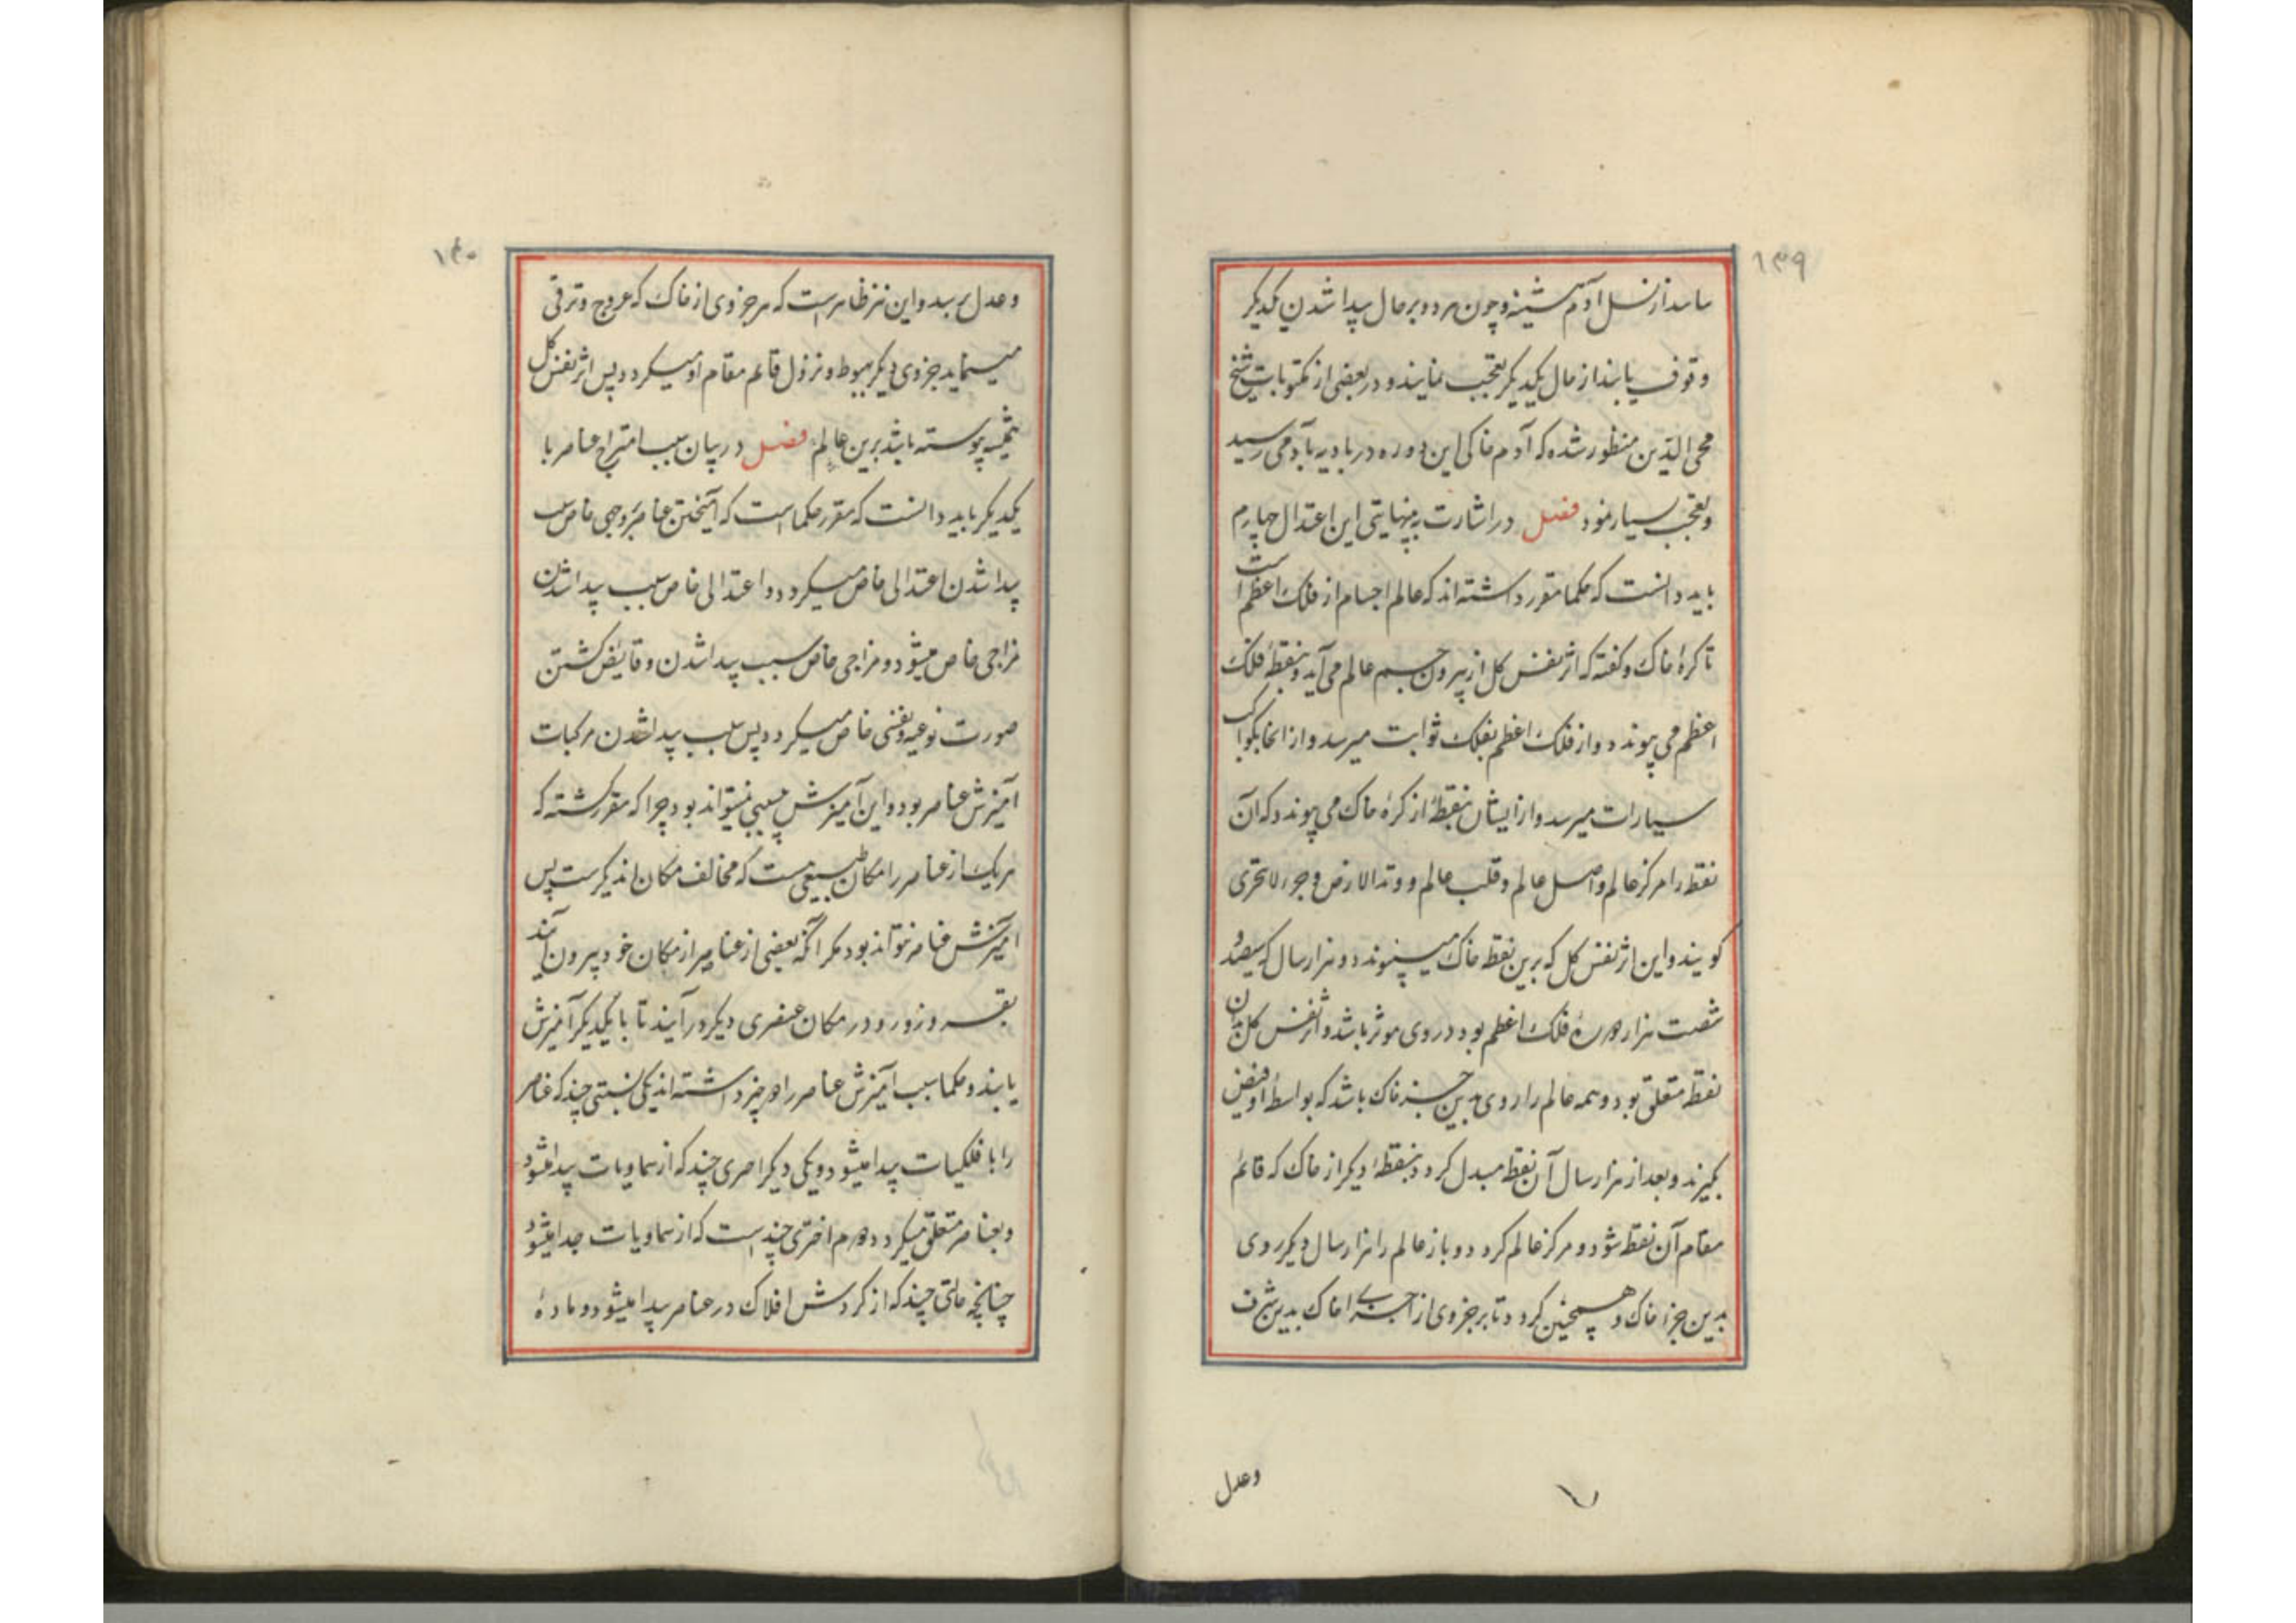 ۱۳۹
از نسل آدم پیشینه و چون هر دو بر حال پیدا شدن یکدیگر
وقوف یابند از حال یکدیگر تعجب نمایند و در بعضی از مکتوبات شیخ
محی الدین منظور شده که آدم خاکی این دوره در بادیه بآدمی رسید
و تعجب بسیار نمود فصل در اشارت به این اعتدال چهارم
باید دانست که حکما مقرر داشته اند که عالم اجسام از فلک اعظم است
تا کرهٔ خاک و گفته که اثر نفس کل از بیرون جسم عالم می آید و بنقطهٔ فلک
اعظم می پیوندد و از فلک اعظم بفلک ثوابت میرسد و از انجا بکواکب
سیارات میرسد و از ایشان بنقطهٔ از کرهٔ خاک می پیوندد که آن
نقطه را مرکز عالم و اصل عالم و قلب عالم و وتد الارض و جزء لا یتجزی
گویند و این اثر نفس کل که برین نقطه خاک میپیوندد و هزار سال که سیصد و
شصت هزار دورهٔ فلک اعظم بود در وی موثر باشد و اثر نفس کل بدان
نقطه متعلق بود و همه عالم را روی بدین جزء خاک باشد که بواسطهٔ او فیض
گیرند و بعد از هزار سال آن نقطه مبدل گردد بنقطهٔ دیگر از خاک که قائم
مقام آن نقطه شود و مرکز عالم گردد و باز عالم را هزار سال دیگر روی
بدین جزء خاک و همچنین گردد تا هر جزوی از اجزای خاک بدین شرف
وعدل
۱۴۰
وعدل برسد و این نیز ظاهرست که هر جزوی از خاک که عروج و ترقی
مینماید جزوی دیگر بهبوط و نزول قائم مقام او میگردد پس اثر نفس کل
همیشه پیوسته باشد برین عالم فصل در بیان سبب امتزاج عناصر با
یکدیگر باید دانست که مقرر حکما است که آمیختن عناصر بوجهی خاص سبب
پیدا شدن اعتدالی خاص میگردد و اعتدالی خاص سبب پیدا شدن
مزاجی خاص میشود و مزاجی خاص سبب پیدا شدن و فایض گشتن
صورت نوعیه و نفسی خاص میگردد پس سبب پیدا شدن مرکبات
آمیزش عناصر بود و این آمیزش بی سببی نمیتواند بود چرا که مقرر گشته که
هر یک از عناصر را مکان طبیعی است که مخالف مکان اند دیگرست پس
آمیزش عناصر نتواند بود مگر آنکه بعضی از عناصر از مکان خود بیرون آیند
بقسر و زور و در مکان عنصری دیگر در آیند تا با یکدیگر آمیزش
یابند و حکما سبب آمیزش عناصر را دو چیز داشته اند یکی نسبتی چند که عناصر
را با فلکیات پیدا میشود و یکی دیگر امری چند که از سماویات پیدا میشود
و بعناصر متعلق میگردد دوم اختری چند است که از سماویات جدا میشود
چنانچه حالتی چند که از گردش افلاک در عناصر پیدا میشود و مادهٔ